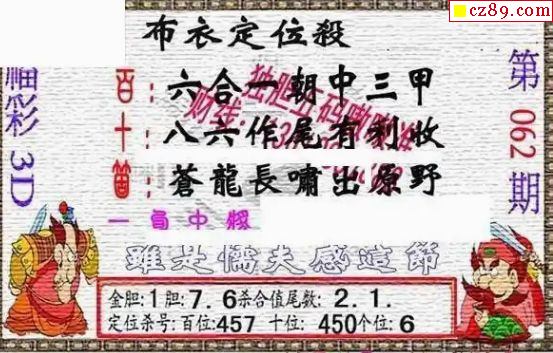 cz89.com
布衣定位殺
福彩3D
百：六合一朝中三甲
十：八六作尾有利收
箇：蒼龍長嘯出原野
第062期
雖是懦夫感這節
金胆:1胆:7.6杀合值尾数:2.1.
定位杀号:百位:457 十位:450个位:6